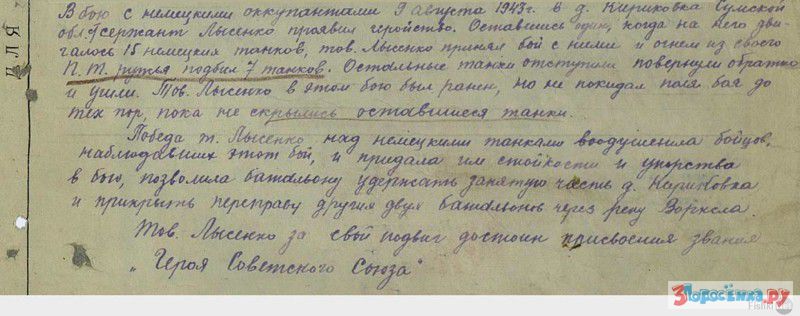 В бою с немецкими оккупантами 9 августа 1943 г. в д. Кириковка Сумской
обл. сержант Лысенко проявил геройство. Оставшись один, когда на него дви-
галось 15 немецких танков, тов. Лысенко принял бой с ними и огнем из своего
П.Т. ружья подбил 7 танков. Остальные танки отступили повернули обратно
и ушли. Тов. Лысенко в этом бою был ранен, но не покидал поля боя до
тех пор, пока не скрылись оставшиеся танки.
Победа т. Лысенко над немецкими танками воодушевила бойцов,
наблюдавших этот бой, и придала им стойкости и упорства
в бою, позволила батальону удержать занятую часть д. Кириковка
и прикрыть переправу других двух батальонов через реку Ворксла.
Тов. Лысенко за свой подвиг достоин присвоения звания
„Героя Советского Союза"
для
3Поросёнка.ру
Fishki.net